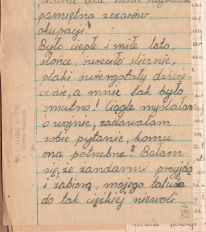 pamiętna z czasów
okupacji
Było ciepłe i miłe lato
słońce, świeciło ślicznie,
ptaki świergotały dźwię-
cznie, a mnie tak było
smutno! Ciągle myślałam
o wojnie, zadawałam
sobie pytanie, komu
ona potrzebna? Bałam
się, że żandarmi przyjdą
i zabiorą mojego tatusia
do tak ciężkiej niewoli